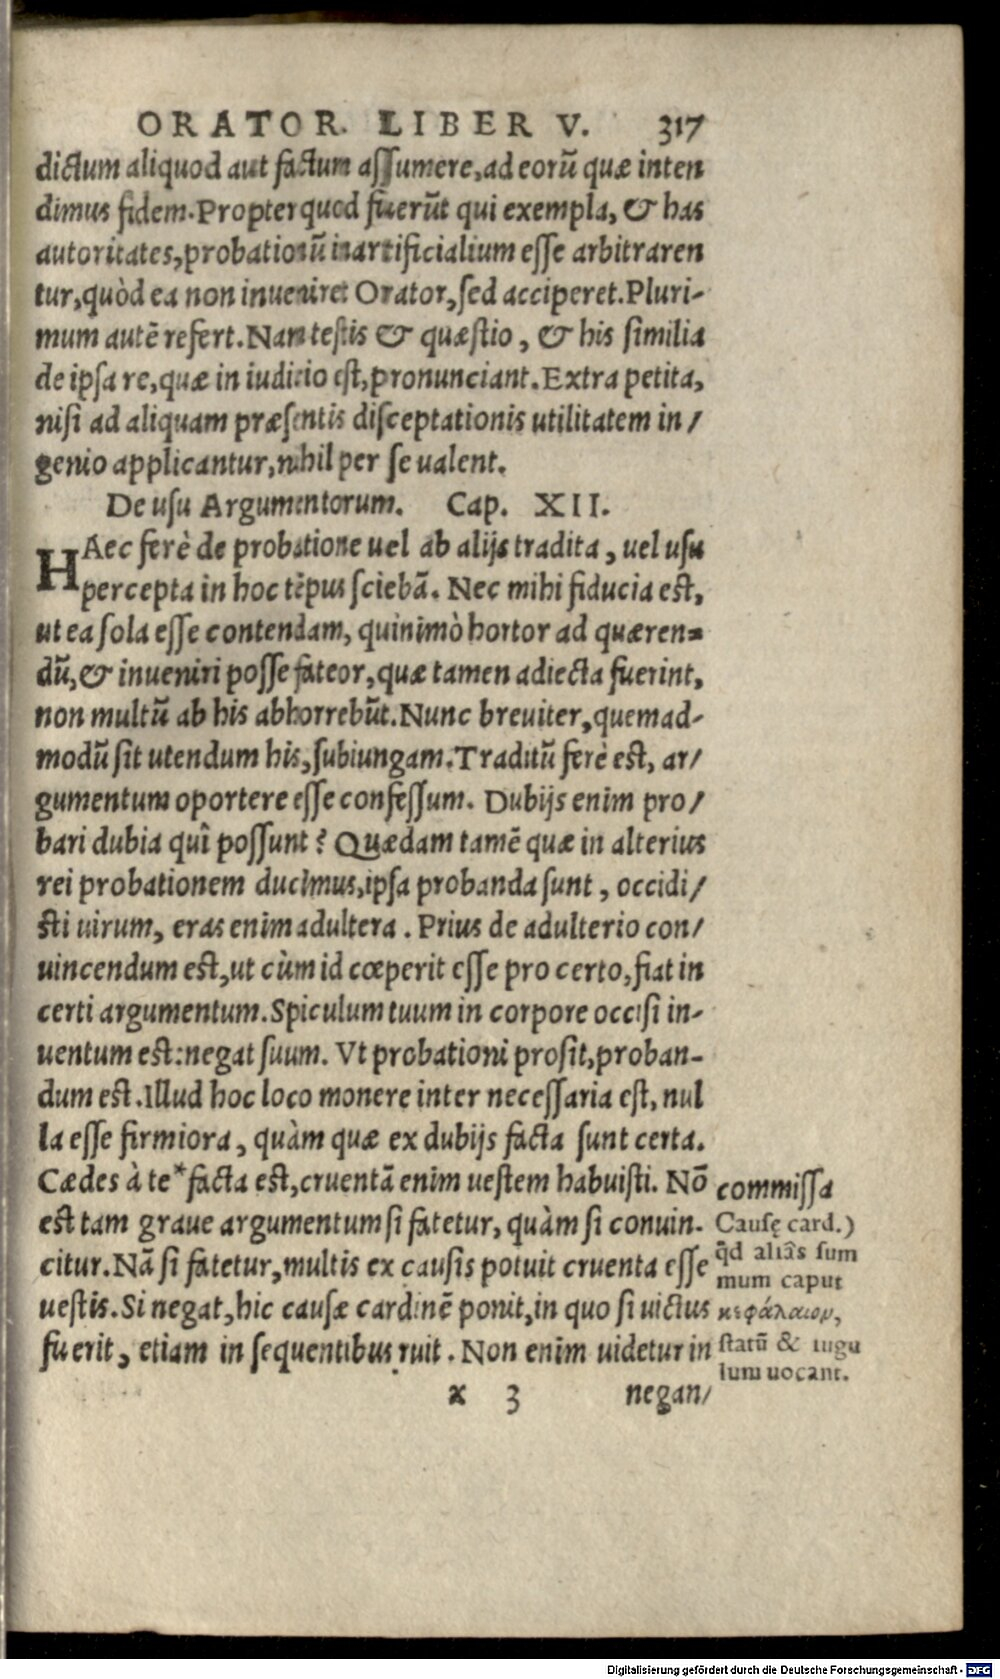 ORATOR. LIBER V. 317
dictum aliquod aut factum assumere, ad eorū quæ inten
dimus fidem. Propter quod fuerūt qui exempla, & has
autoritates, probationū inartificialium esse arbitraren
tur, quòd ea non inueniret Orator, sed acciperet. Pluri-
mum autē refert. Nam testis & quæstio, & his similia
de ipsa re, quæ in iudicio est, pronunciant. Extra petita,
nisi ad aliquam præsentis disceptationis utilitatem in/
genio applicantur, nihil per se ualent.
De usu Argumentorum. Cap. XII.
HAec ferè de probatione uel ab alijs tradita, uel usu
percepta in hoc tēpus sciebā. Nec mihi fiducia est,
ut ea sola esse contendam, quinimò hortor ad quæren=
dū, & inueniri posse fateor, quæ tamen adiecta fuerint,
non multū ab his abhorrebūt. Nunc breuiter, quemad-
modū sit utendum his, subiungam. Traditū ferè est, ar/
gumentum oportere esse confessum. Dubijs enim pro/
bari dubia quî possunt? Quædam tamē quæ in alterius
rei probationem ducimus, ipsa probanda sunt, occidi/
sti uirum, eras enim adultera. Prius de adulterio con/
uincendum est, ut cùm id cœperit esse pro certo, fiat in
certi argumentum. Spiculum tuum in corpore occisi in-
uentum est: negat suum. Vt probationi prosit, proban-
dum est. Illud hoc loco monere inter necessaria est, nul
la esse firmiora, quàm quæ ex dubijs facta sunt certa.
Cædes à te* facta est, cruentā enim uestem habuisti. Nō
est tam graue argumentum si fatetur, quàm si conuin-
citur. Nā si fatetur, multis ex causis potuit cruenta esse
uestis. Si negat, hic causæ cardinē ponit, in quo si uictus
fuerit, etiam in sequentibus ruit. Non enim uidetur in
x 3 negan/
commissa
Causę card.)
q̄d aliâs sum
mum caput
κεφάλαιον,
statū & iugu
lum uocant.
Digitalisierung gefördert durch die Deutsche Forschungsgemeinschaft - DFG